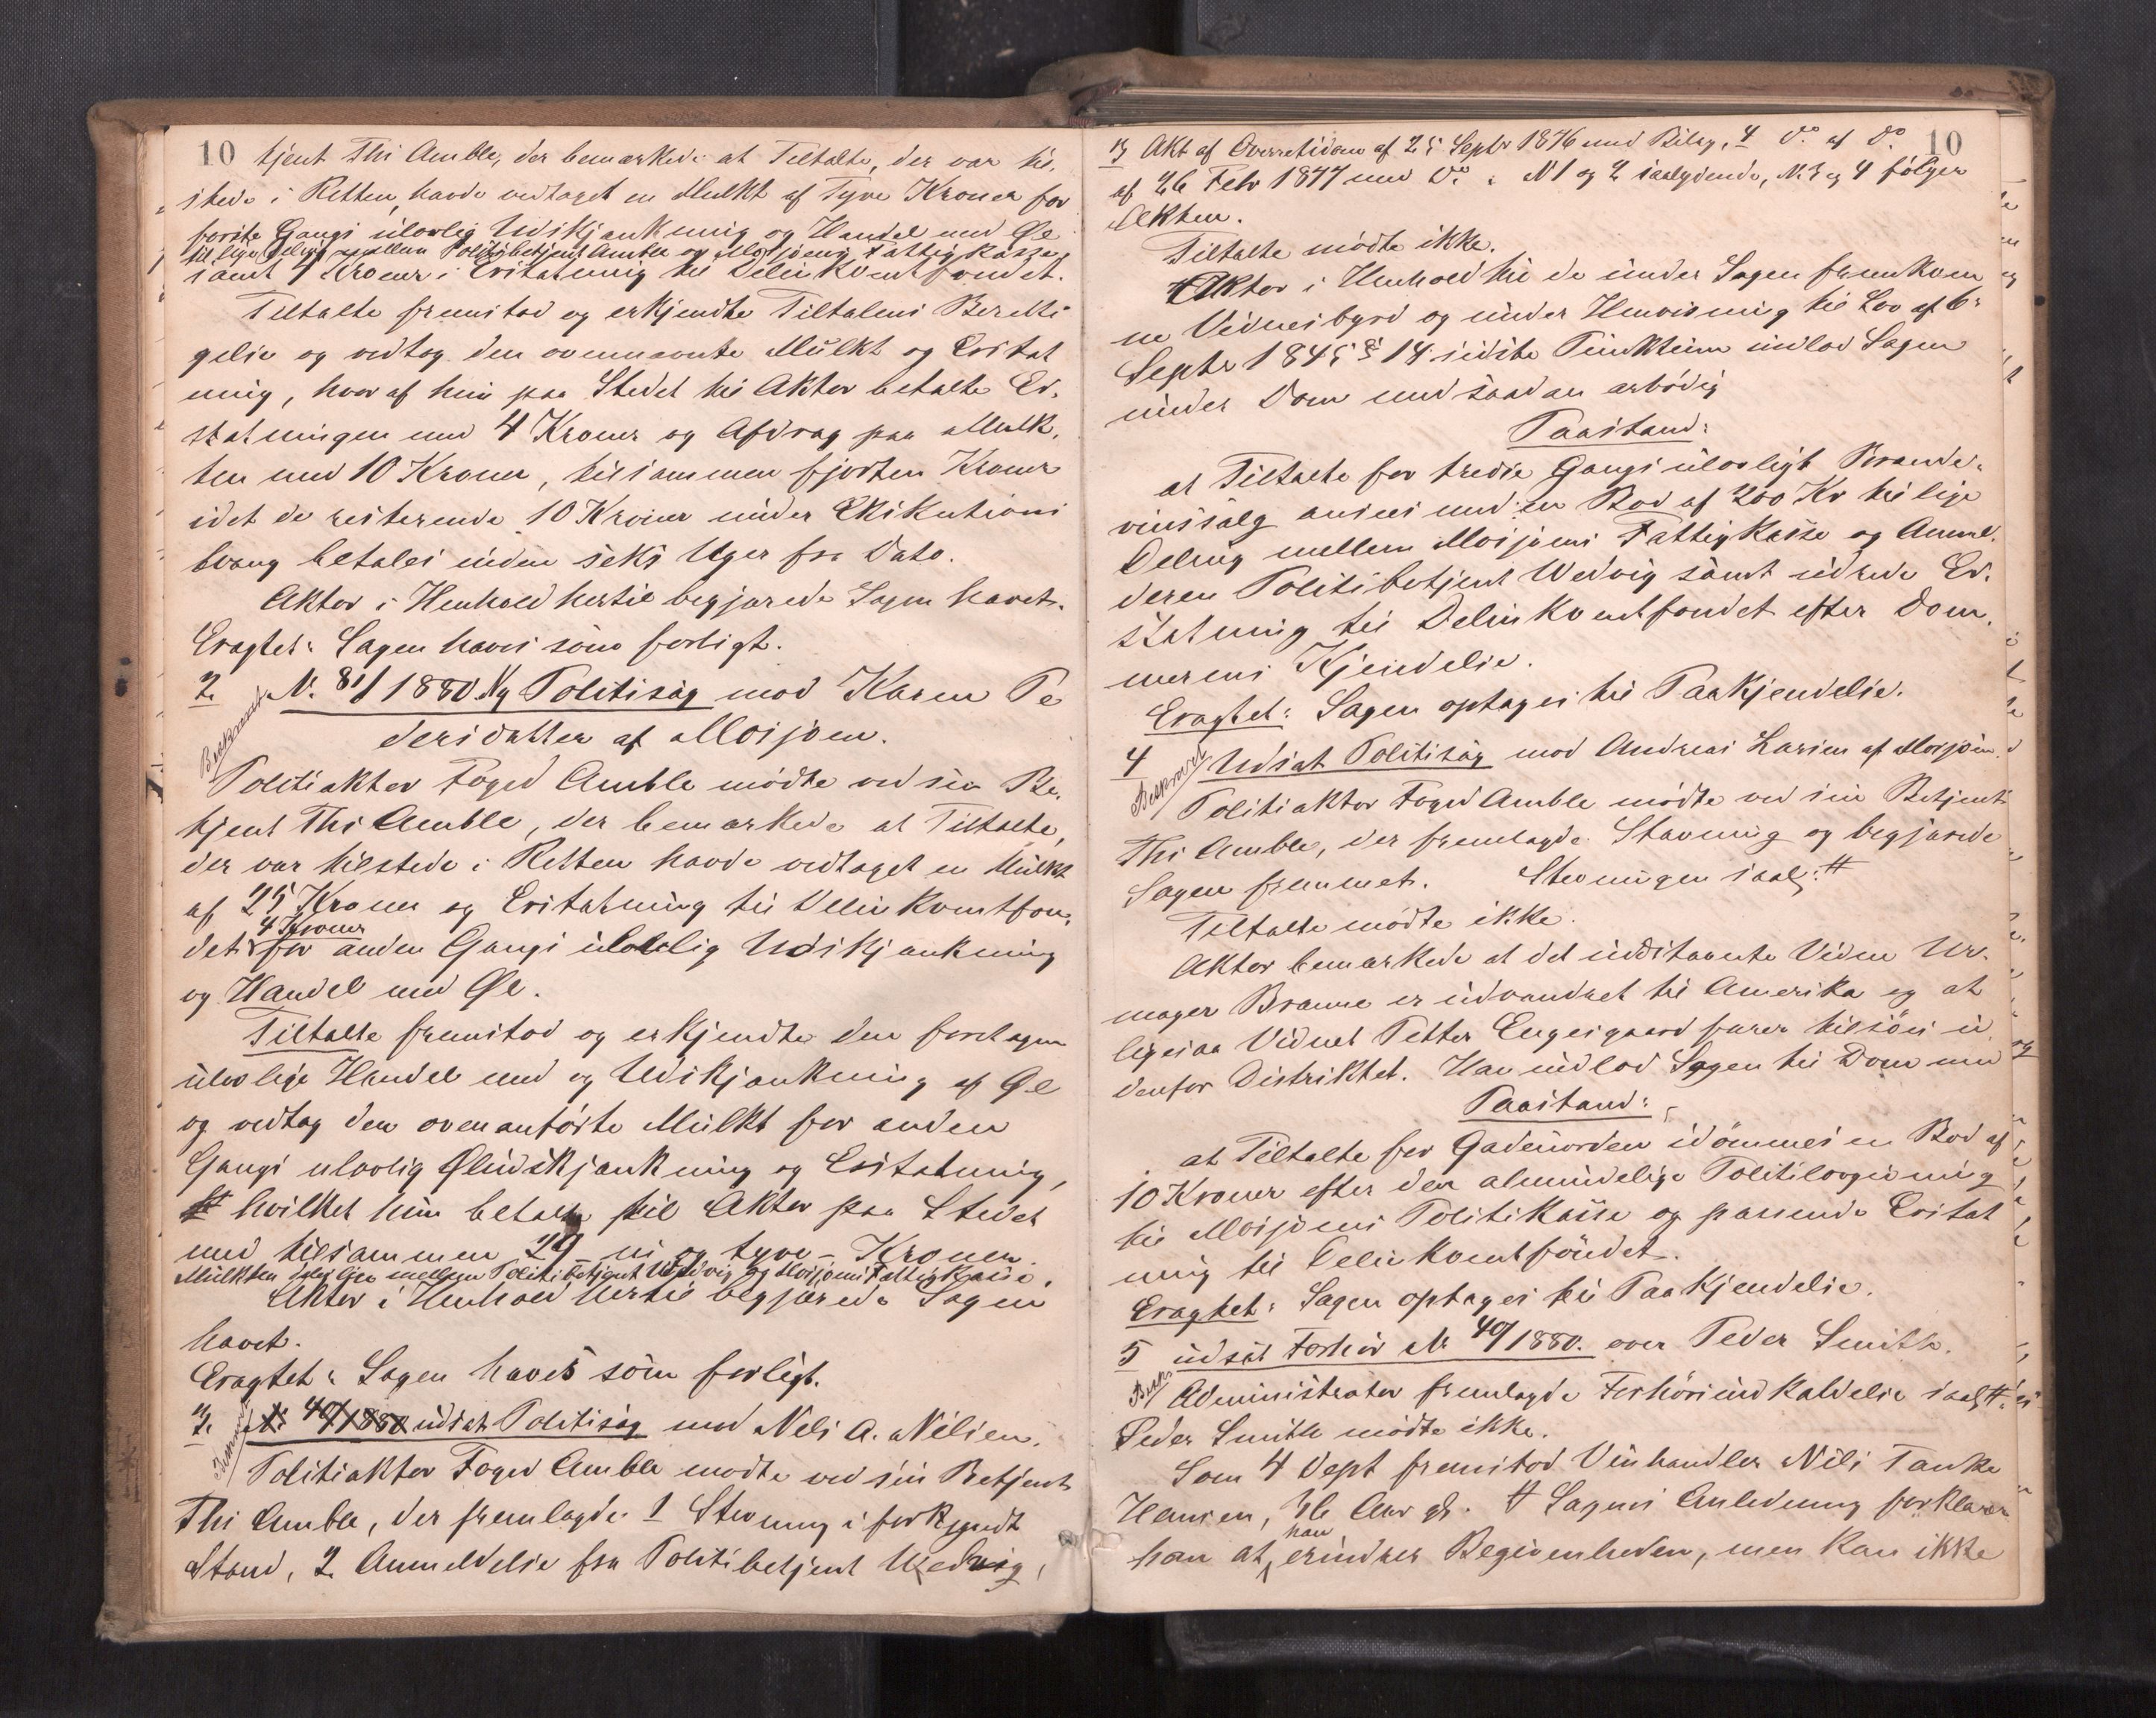 10 tjent Ths Amble, der bemærkede at Tiltalte, der var til-
stede i Retten, havde vedtaget en Mulkt af Tyve Kroner for
første Gangs ulovlig Udskjænkning og Handel med Øl
til lige Deling mellem Politibetjent Amble og Mosjøens Fattigkasse
samt 4 Kroner i Erstatning til Delinkventfondet.
Tiltalte fremstod og erkjendte Tiltalens Beretti
gelse og vedtog den ovennævnte Mulkt og Erstat
ning, hvoraf hun paa Stedet til Aktor betalte Er-
statningen med 4 Kroner og Afdrag paa Mulk-
ten med 10 Kroner, tilsammen fjorten Kroner
idet de resterende 10 Kroner under Eksekutions
tvang betales inden seks Uger fra Dato.
Aktor i Henhold hertil begjærede Sagen hævet.
Eragtet: Sagen hæves som forligt.
2. N. 81/1880 Ny Politisag mod Karen Pe
Beskrevet
dersdatter af Mosjøen.
Politiaktor Foged Amble mødte ved sin Be-
tjent Ths Amble, der bemærkede at Tiltalte,
der var tilstede i Retten havde vedtaget en Mulkt
af 25 Kroner og Erstatning til Delinkventfon-
4 Kroner
det for anden Gangs ulovlig Udskjænkning
og Handel med Øl.
Tiltalte fremstod og erkjendte den foretagne
ulovlige Handel med og Udskjænkning af Øl
og vedtog den ovenanførte Mulkt for anden
Gangs ulovlig Øludskjænkning og Erstatning,
hvilket hun betalte til Aktor paa Stedet
med tilsammen 29 – ni og tyve – Kroner.
Mulkten deles lige mellem Politibetjent Wedvig og Mosjøens Fattigkasse.
Aktor i Henhold hertil begjærede Sagen
hævet.
Eragtet: Sagen hæves som forligt.
3. N. 40/1880 udsat Politisag mod Nels A. Nilsen.
Politiaktor Foged Amble mødte ved sin Betjent
Ths Amble, der fremlagde 1 Stevning i forkyndt
Stand, 2. Anmeldelse fra Politibetjent Wedvig,
3 Akt af Overretsdom af 25 Septr 1876 med Bilag, 4 Do af Do 10
af 26 Febr 1877 med Do. N 1 og 2 saalydende, N. 3 og 4 følger
Akten.
Tiltalte mødte ikke.
Aktor i Henhold til de under Sagen fremkom
ne Vidnesbyrd og under Henvisning til Lov af 6-
Septr 1845 § 14 sidste Punktum indlod Sagen
under Dom med saadan ærbødig
Paastand:
at Tiltalte for tredie Gangs ulovligt Brænde-
vinssalg ansees med en Bod af 200 Kr til lige
Deling mellem Mosjøens Fattigkasse og Anmel-
deren Politibetjent Wedvig samt udrede Er-
statning til Delinkventfondet efter Dom-
merens Kjendelse.
Eragtet: Sagen optages til Paakjendelse.
4 Udsat Politisag mod Andreas Larsen af Mosjøen
Beskrevet
Politiaktor Foged Amble mødte ved sin Betjent
Ths Amble, der fremlagde Stævning og begjærede
Sagen fremmet. Stevningen saal: #
Tiltalte mødte ikke.
Aktor bemærkede at det udstævnte Vidne Ur-
mager Bramse er udvandret til Amerika og at
ligesaa Vidnet Petter Engesgaard farer tilsøs u-
denfor Distriktet. Han indlod Sagen til Dom med
Paastand:
at Tiltalte for Gadeuorden idømmes en Bod af
10 Kroner efter den almindelige Politilovgivning
til Mosjøens Politikasse og passende Erstat
ning til Delinkventfondet.
Eragtet: Sagen optages til Paakjendelse.
5 udsat Forhør N. 40/1880. over Peder Smith.
Besk.
Administrator fremlagde Forhørsindkaldelse saal #
Peder Smith mødte ikke.
Som 4 Dept fremstod Vinhandler Nils Tanke
Hansen, 36 Aar gl. I Sagens Anledning forklarer
han
han at erindrer Begivenheden, men kan ikke